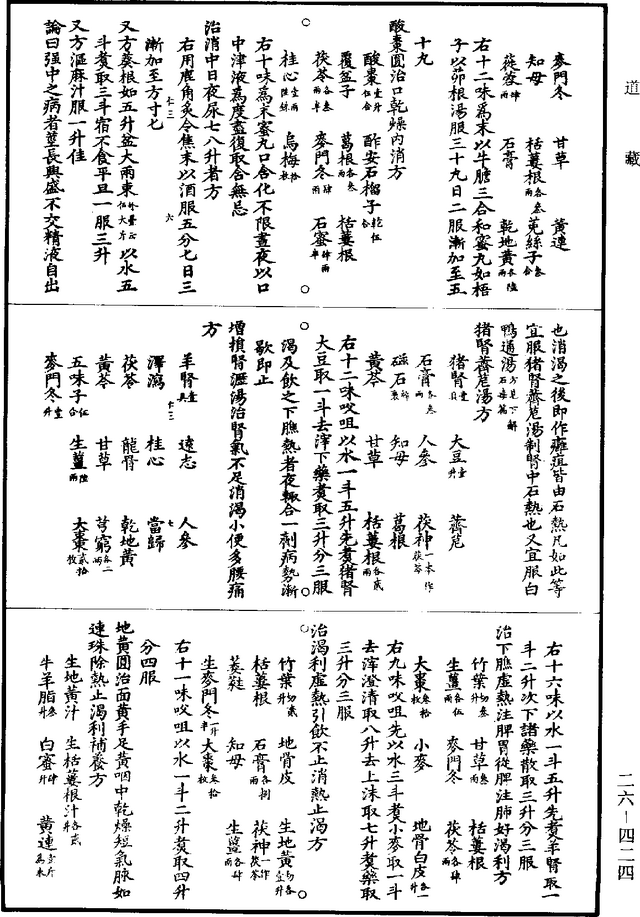 道藏
麥門冬　甘草　黃連
知母　栝蔞根各參兩　菟絲子參合
蓯蓉肆兩　石膏　乾地黃各陸兩
右十二味爲末以牛膽三合和蜜丸如梧
子以茆根湯服三十九日二服漸加至五
十九
酸棗圓治口乾燥內消方
酸棗壹升伍合　酢安石榴子乾伍合
覆盆子　葛根各參兩　栝蔞根
茯苓各參兩半　麥門冬肆兩　石蜜肆兩半
桂心壹兩陸銖　烏梅伍拾枚
右十味爲末蜜丸口含化不限晝夜以口
中津液爲度盡復取含無忌
治消中日夜尿七八升者方
右用鹿角炙令焦末以酒服五分七日三
漸加至方寸七
又方葵根如五升盆大兩束以水五
斗煑取三斗宿不食平旦一服三升
又方漚麻汁服一升佳
論曰强中之病者莖長興盛不交精液自出
也消渴之後即作癰疽皆由石熱凡如此等
宜服猪腎薺苨湯制腎中石熱也又宜服白
鴨通湯方見下解石毒篇
猪腎薺苨湯方
猪腎壹具　大豆壹升　薺苨
石膏各參兩　人參　茯神一本作茯苓
磁石綿裹　知母　葛根
黃芩　甘草　栝蔞根各貳兩
右十二味㕮咀以水一斗五升先煑猪腎
大豆取一斗去滓下藥煑取三升分三服
渴及飲之下膲熱者夜輒合一劑病勢漸
歇即止
增損腎瀝湯治腎氣不足消渴小便多腰痛
方
羊腎壹具　遠志　人參
澤瀉　桂心　當歸
茯苓　龍骨　乾地黃
黃芩　甘草　芎窮各二兩
五味子伍合　生薑陸兩　大棗貳拾枚
麥門冬壹升
右十六味以水一斗五升先煑羊腎取一
斗二升次下諸藥散取三升分三服
治下膲虛熱注脾胃從脾注肺好渴利方
竹葉切參升　甘草參兩　栝蔞根
生薑各伍兩　麥門冬　茯苓各肆兩
大棗參拾枚　小麥　地骨白皮各一升
右九味㕮咀先以水三斗煑小麥取一斗
去滓澄清取八升去上沫取七升煑藥取
三升分三服
治渴利虛熱引飲不止消熱止渴方
竹葉切貳升　地骨皮　生地黃切各壹升
栝蔞根　石膏各捌兩　茯神一作茯苓
萎蕤　知母　生薑各肆兩
生麥門冬半升　大棗參拾枚
右十一味㕮咀以水一斗二升煑取四升
分四服
地黃圓治面黃手足黃咽中乾燥短氣脉如
連珠除熱止渴利補養方
生地黃汁　生栝蔞根汁各貳升
牛羊脂參升　白蜜肆升　黃連壹斤爲末
二六—四二四